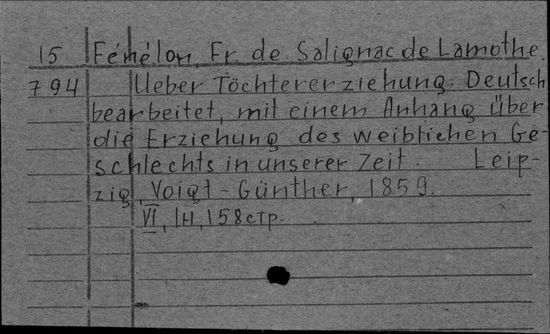 15 Fénélon, Fr. de Salignac de Lamothe.
794 Ueber Töchtererziehung. Deutsch
bearbeitet, mit einem Anhang über
die Erziehung des weiblichen Ge-
schlechts in unserer Zeit. Leip-
zig, Voigt-Günther, 1859.
VI, 1н, 158 стр.